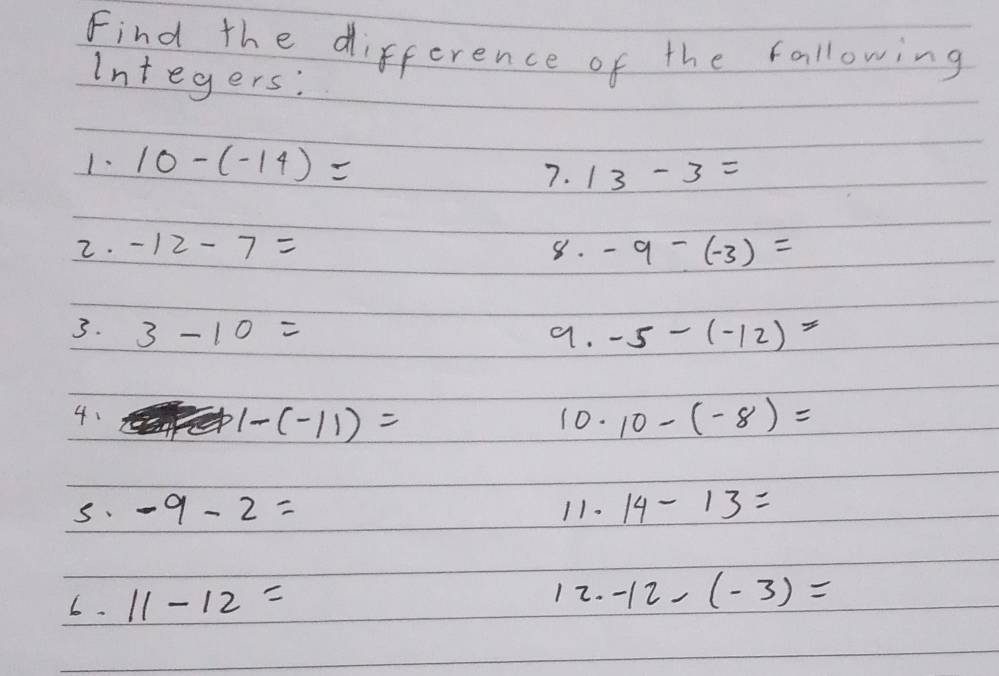 Find the difference of the following
Integers:
1. 10 - (-14) =
7. 13 - 3 =
2. -12 - 7 =
8. -9 - (-3) =
3. 3 - 10 =
9. -5 - (-12) =
4. 1 - (-11) =
10. 10 - (-8) =
5. -9 - 2 =
11. 14 - 13 =
6. 11 - 12 =
12. -12 - (-3) =